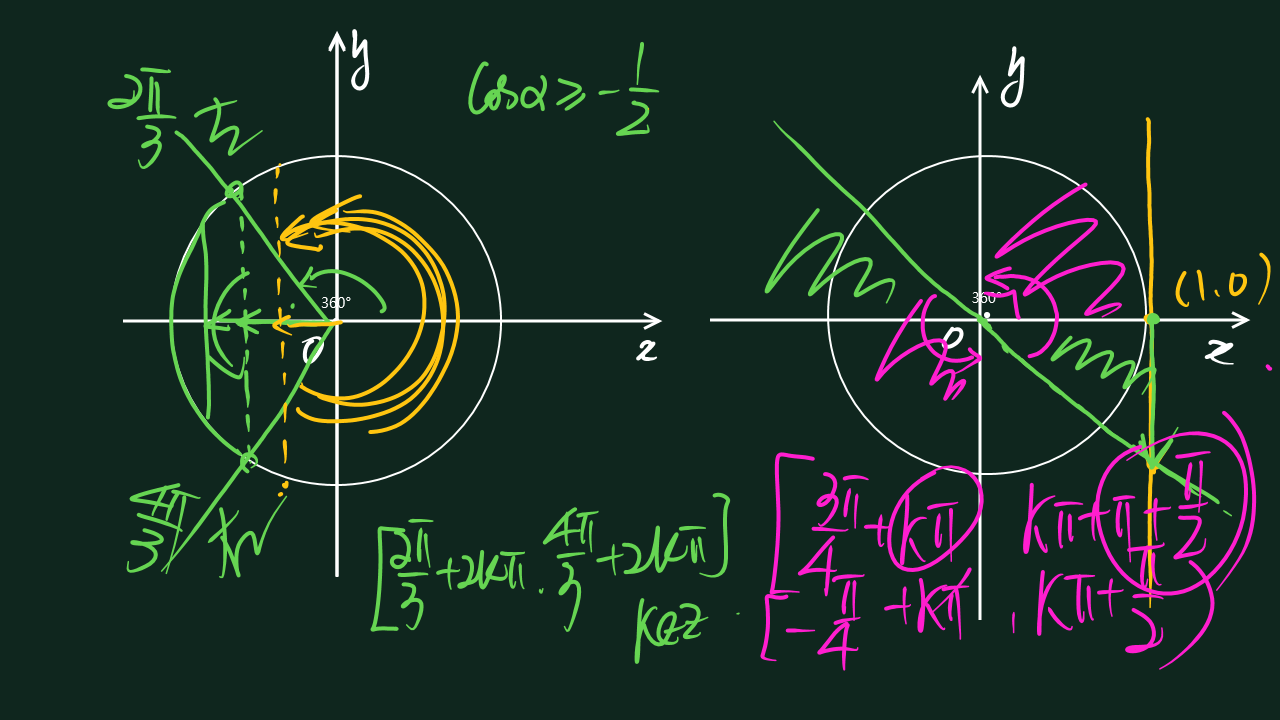 y
cosα ≥ -1/2
2π/3
360°
O
x
4π/3
[2π/3 + 2kπ, 4π/3 + 2kπ]
k∈z
y
(1,0)
360°
O
x
[3π/4 + kπ, kπ + π + π/2)
[-π/4 + kπ, kπ + π/2)